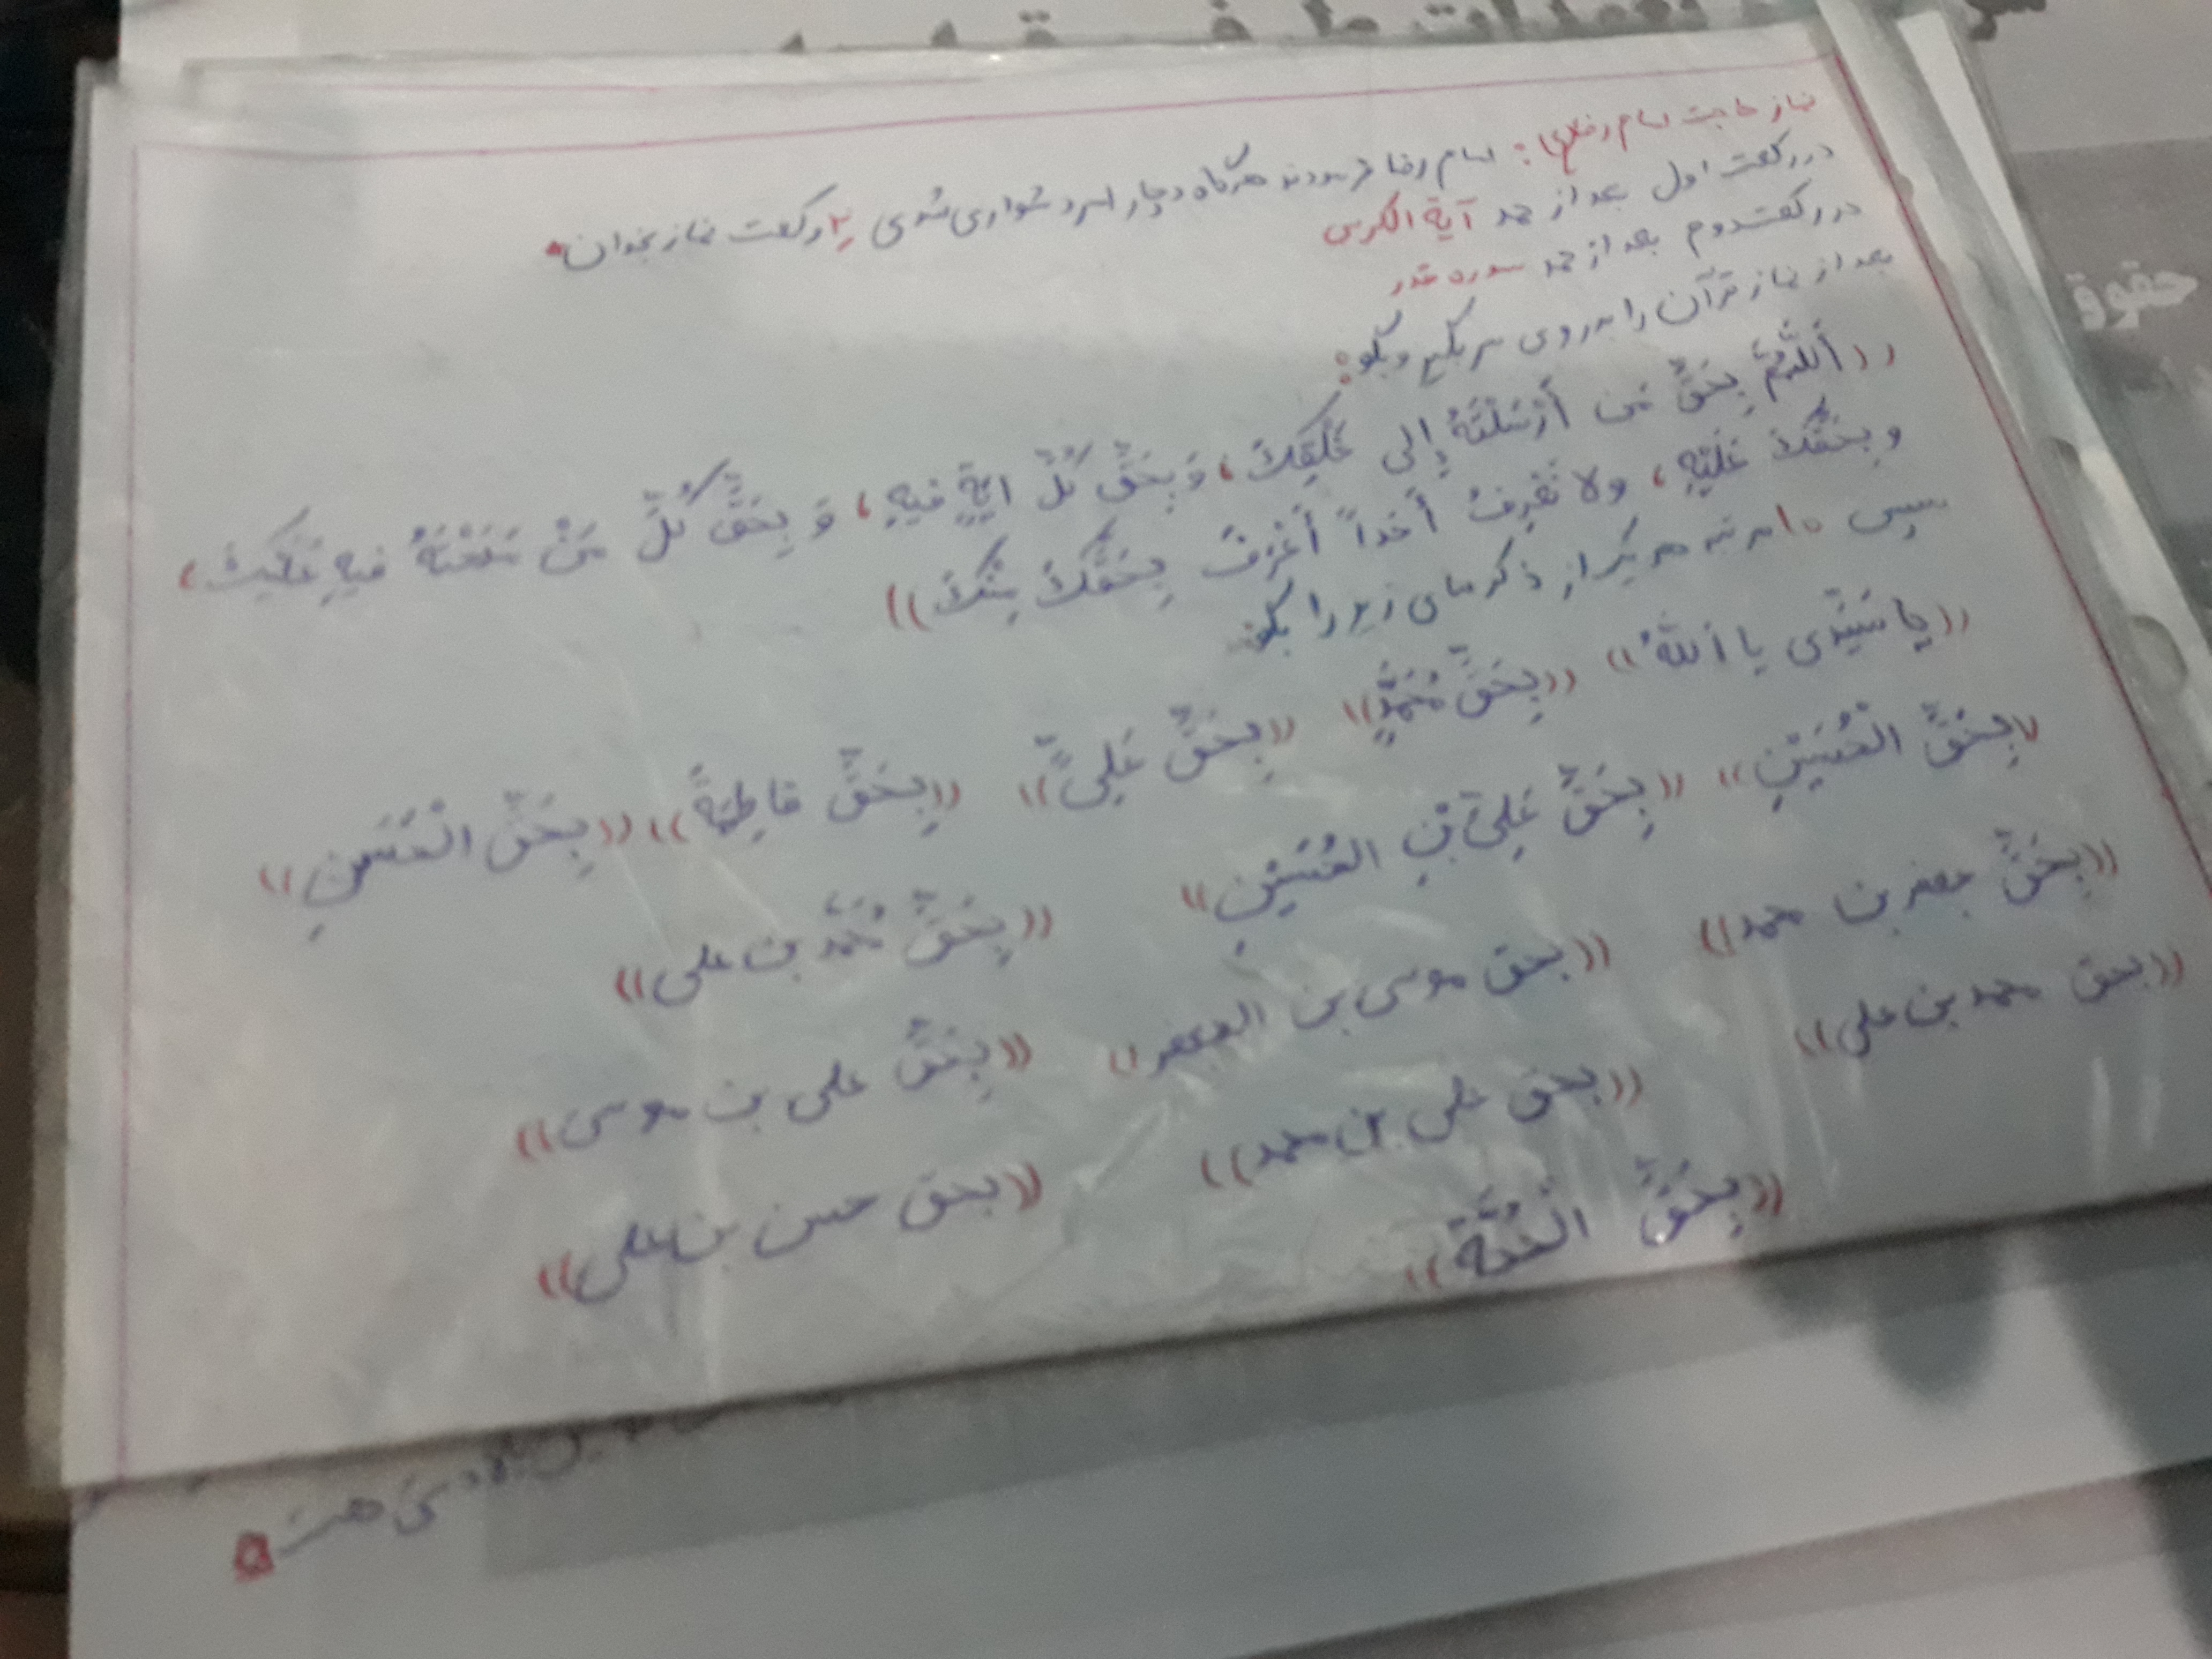 نماز حاجت امام رضا(ع): امام رضا فرمودند هرگاه دچار امر دشواری شدی ۲ رکعت نماز بخوان.
در رکعت اول بعد از حمد آیة الکرسی
در رکعت دوم بعد از حمد سوره قدر
بعد از نماز قرآن را به روی سر بگیر و بگو:
((أَللّهُمَّ بِحَقِّ مَن أَرْسَلْتَهُ إِلی خَلْقِكَ، وَ بِحَقِّ كُلِّ ایَةٍ فیهِ، وَ بِحَقِّ كُلِّ مَنْ مَدَحْتَهُ فیهِ عَلَیْكَ،
و بِحَقِّكَ عَلَیْهِ، ولا نَعْرِفُ أَحَداً أَعْرَفَ بِحَقِّكَ مِنْكَ))
سپس ۱۰ مرتبه هر یک از ذکرهای زیر را بگو:
((یا سَیِّدی یا أَللّهُ)) ((بِحَقِّ مُحَمَّدٍ)) ((بِحَقِّ عَلِیٍّ)) ((بِحَقِّ فاطِمَةَ)) ((بِحَقِّ الْحَسَنِ))
((بِحَقِّ الْحُسَیْنِ)) ((بِحَقِّ عَلِیِّ بْنِ الحُسَیْنِ)) ((بِحَقِّ مُحَمَّد بن علی))
((بِحَقِّ جعفر بن محمد)) ((بحق موسی بن الجعفر)) ((بِحَقِّ علی بن موسی))
((بحق محمد بن علی)) ((بحق علی بن محمد)) ((بحق حسن بن علی))
((بِحَقِّ الْحُجَّةِ))
حقوق